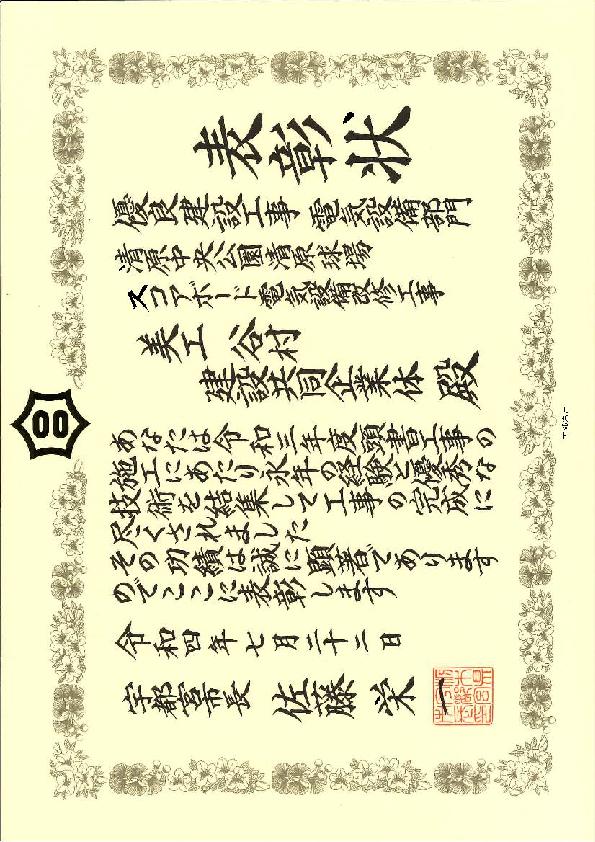 表彰状
優良建設工事 電気設備部門
清原中央公園清原球場
スコアボード電気設備改修工事
美工 谷村
建設共同企業体 殿
あなたは令和三年度頭書工事の
施工にあたり永年の経験と優秀な
技術を結集して工事の完成に
尽くされました
その功績は誠に顕著であります
のでここに表彰します
令和四年七月二十二日
宇都宮市長 佐藤栄一